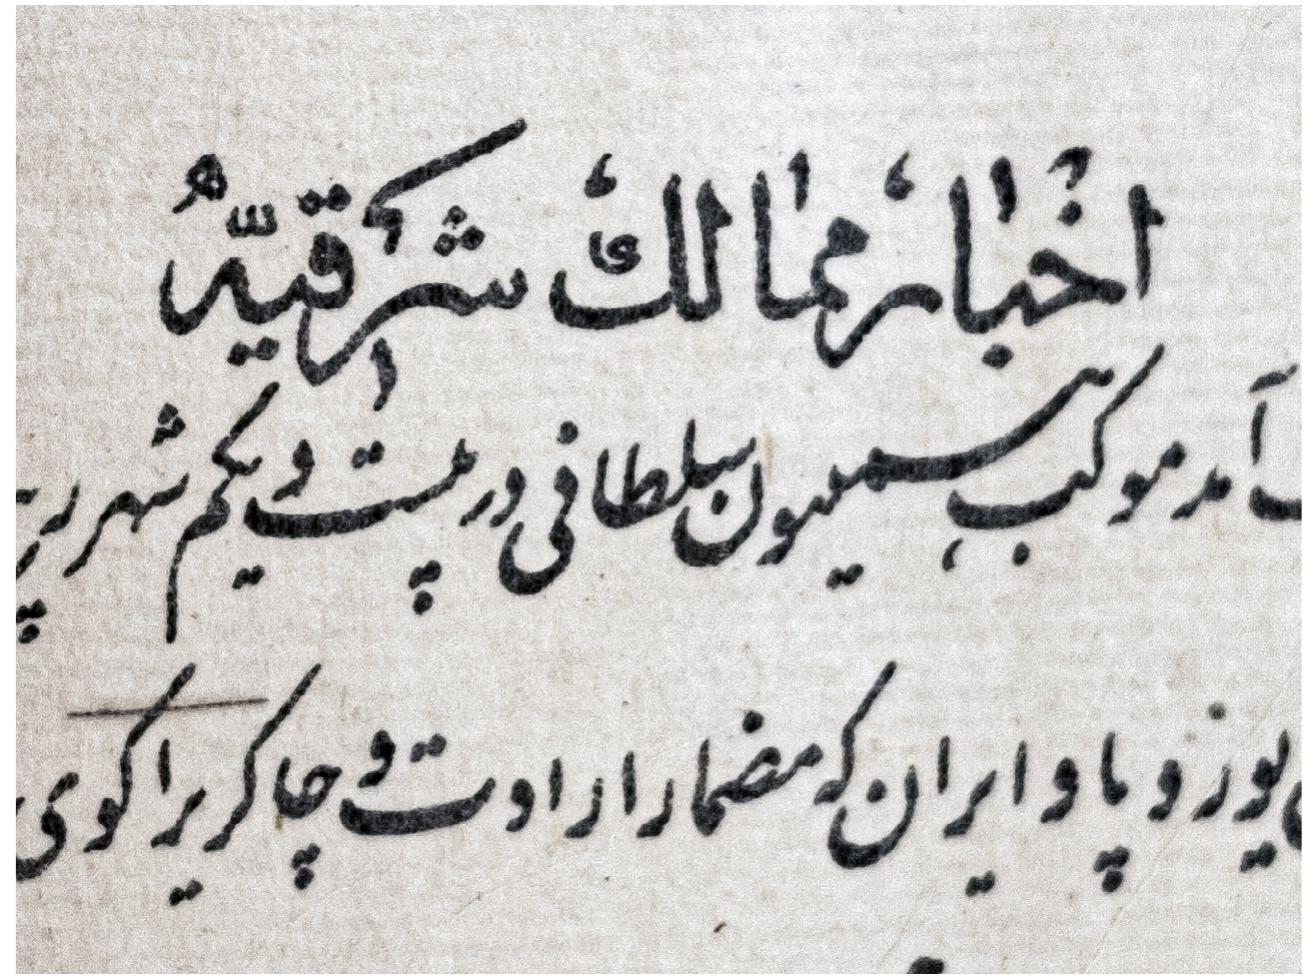 اخبار ممالک شرقیه
آمد موکب سیمیون سلطانی در بیست و یکم شهر
یوز و پا و ایران که مضمار ارادت و چاکری را کوی